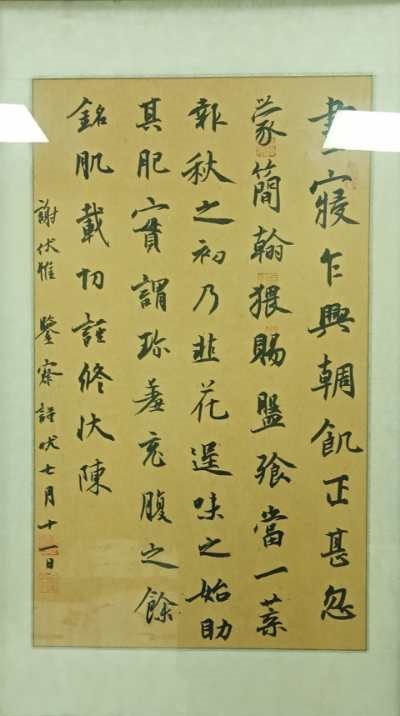 晝寢乍興輖飢正甚忽
蒙簡翰猥賜盤飧當一葉
報秋之初乃韭花逞味之始助
其肥實謂珍羞充腹之餘
銘肌載切謹修狀陳
謝伏惟 鑒察謹狀七月十一日